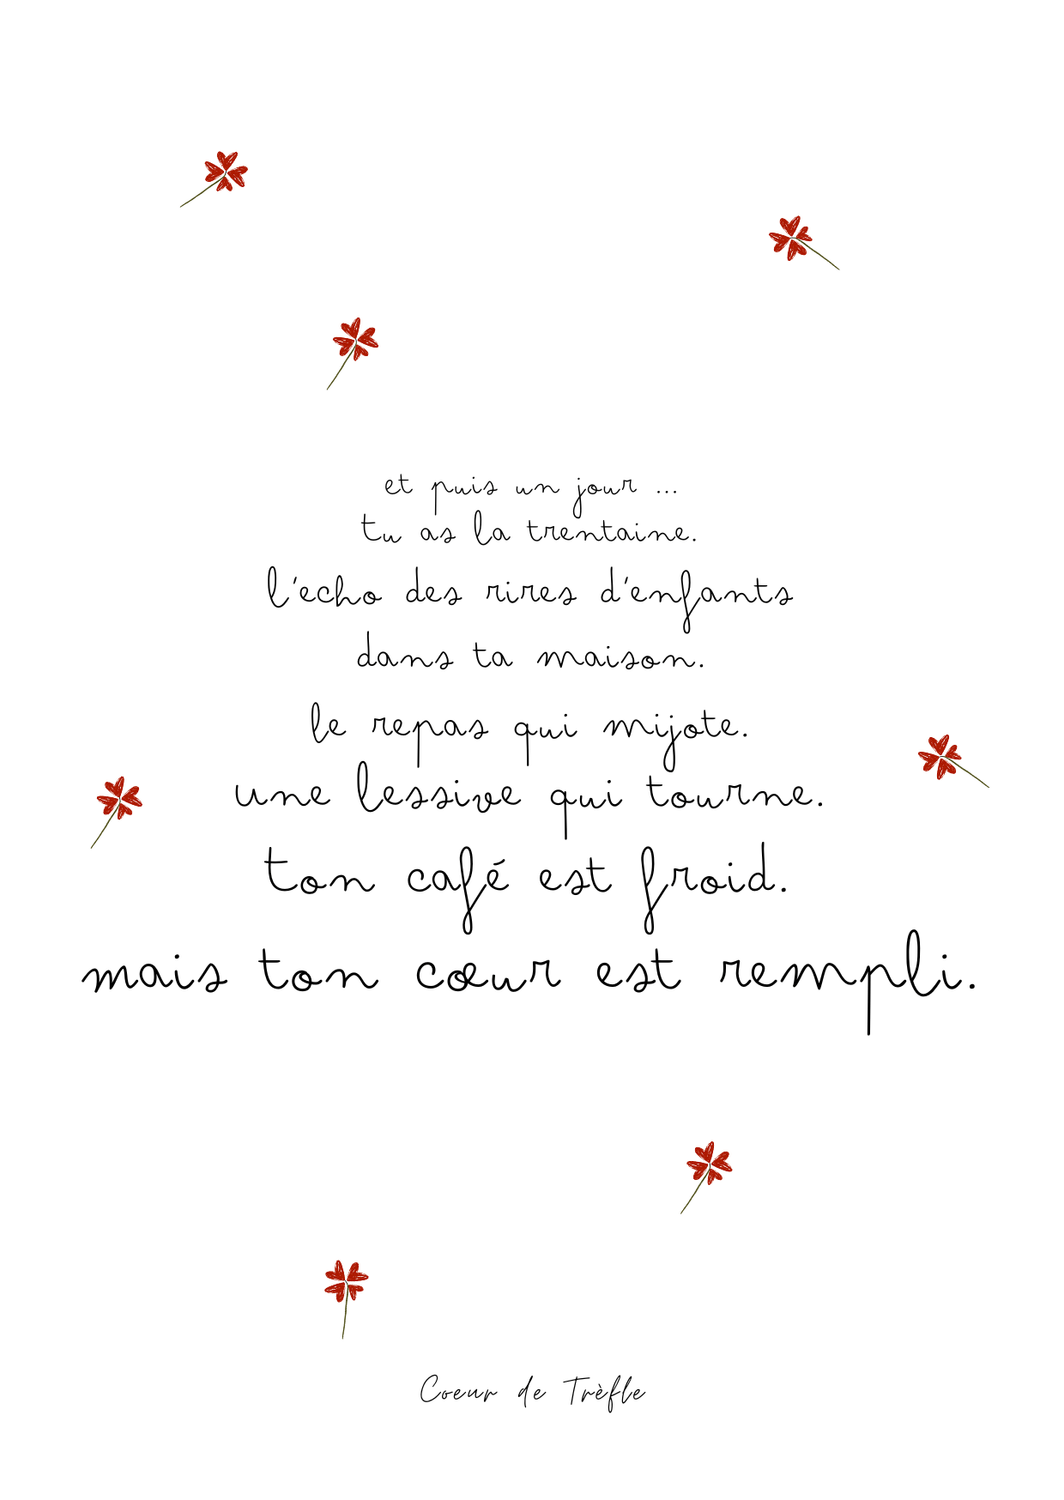 et puis un jour ...
tu as la trentaine.
l'echo des rires d'enfants
dans ta maison.
le repas qui mijote.
une lessive qui tourne.
ton café est froid.
mais ton cœur est rempli.
Coeur de Trèfle